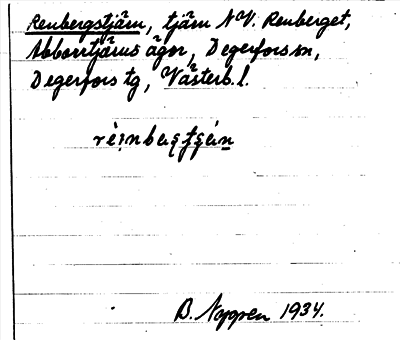 Renbergstjärn, tjärn NV. Renberget,
Abborrtjärns ägor, Degerfors sn,
Degerfors tg, Västerb. l.
B. Noppen 1934.